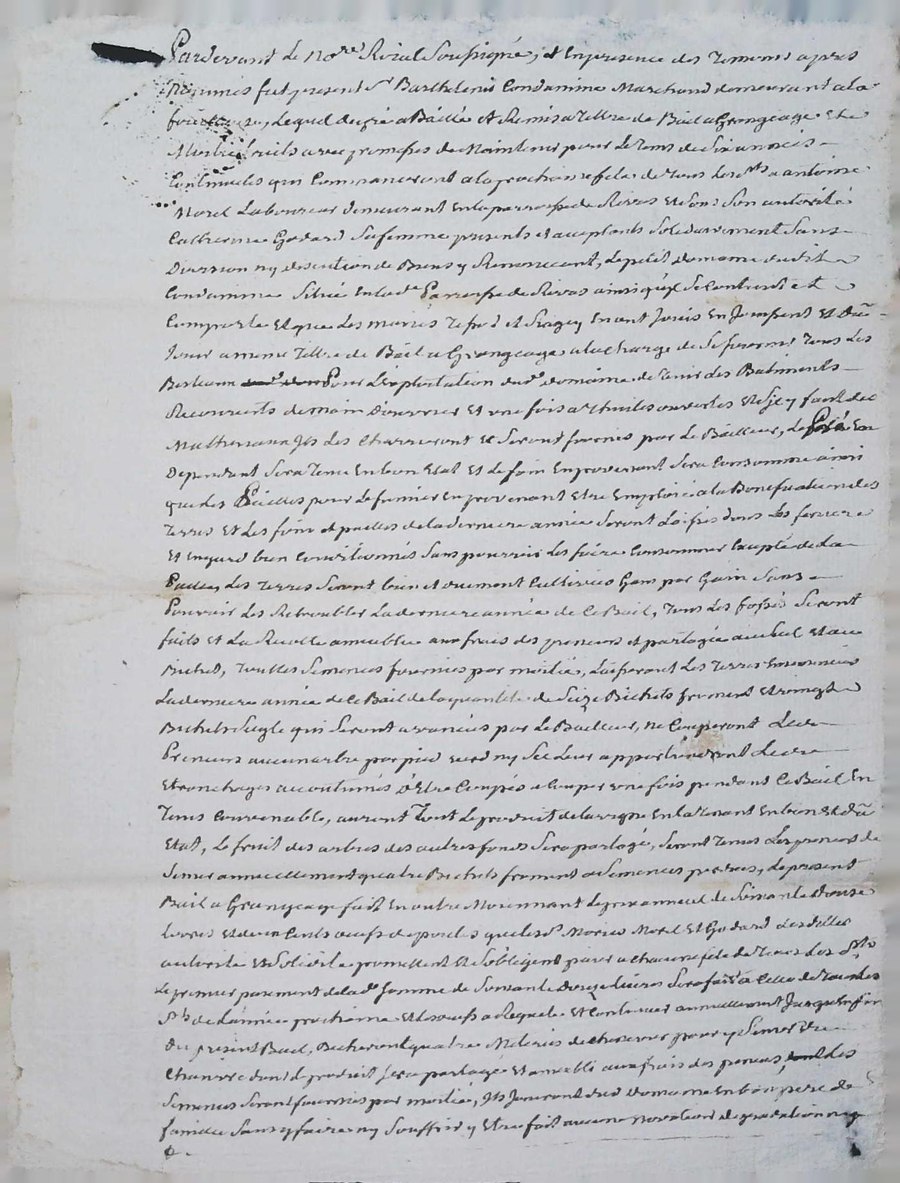 Pardevant le No.re Roial Soussigné, et En presence des Temoins apres
Nommés fut present Sr Barthelemi Condamine Marchand demeurant a la
lequel de gré a Baillé et Remis a Tittre de Bail a Grangeage Et a
Moitié fruits avec promesses de Maintenir pour le Tems de Six années
Continuelles qui Commenceront a la prochaine fete de Tous les Sts a antoine
Morel Laboureur demeurant En la parroisse de Rivas et Sous Son autorité
Catherine Godard Sa femme presents et acceptants Solidairement Sans
Division ny discution de Biens y Renoncent, le petit domaine dudit
Condamine Situé En lad.e Parroisse de Rivas ainsi qu'il Se Contient et
Comporte Et que les mariés En ont Jouis En Jouissent Et
Jouir a meme Tittre de Bail a Grangeage a la charge de Tous les
Bestiaux Pour L'exploitation dud. domaine de Tenir les Batiments
Recouverts de main D'ouvrier Et une fois a Thuiles ouvertes Et S'il y faut des
Matheriaux Ils les Charrieront Et Seront fournis par le Bailleur, le Pré En
Dependant Sera Tenu En bon Etat Et le foin En provenant Sera Consommé ainsi
que les Pailles pour le fumier En provenant Etre Emploié a la Bonification des
Terres Et les foins et pailles de la derniere année Seront Laissés dans les
Et bien Conditionnés Sans pouvoir les faire Consommer Excepté de la
Paille, les Terres Seront bien et duement Cultivées Gain par Gain Sans
Pouvoir les Retroubler La derniere année de Ce Bail, Tous les fossés Seront
faits Et La Recolte ameublie aux frais des preneurs et partagée au Et au
Bichet, Touttes Semences fournies par moitié, Laisseront les Terres Ensemencées
La derniere année de Ce Bail de la quantité de Seize Bichets froment Et vingt
Bichets Seigle qui Seront avancés par le Bailleur, ne Couperont Les
Preneurs aucun arbre par pied verd ny Sec Leur appartiendront
Etronchages accoutumés d'Etre Coupés a Couper une fois pendant Ce Bail En
Tems Convenable, auront Tout le produit de la vigne En la Tenant En bon Et
Etat, Le fruit des arbres des autres fonds Sera partagé, Seront Tenus Les preneurs de
Semer annuellement quatre Bichets froment Semences le present
Bail a Grangeage fait En outre Moiennant le prix annuel de Soixante Douze
Livres Et deux Cents œufs de poules que les d. Mariés Morel Et Godard
autorité Et Solidité promettent Et S'obligent paier a chacune fete de Tous les Sts
Le premier paiement de lad. Somme de Soixante Douze livres Sera fait a Celle de Tous les
Sts de L'année prochaine Et les œufs a Et Continuer annuellement Jusqu'En fin
Du present Bail, quatre de pour y Semer du
Chanvre dont le produit Sera partagé Et ameubli aux frais des preneurs, les
Semences Seront fournies par moitié, Ils Jouiront dud domaine En bon pere de
famille Sans y faire ny Souffrir y Etre fait aucune novation degradation ny